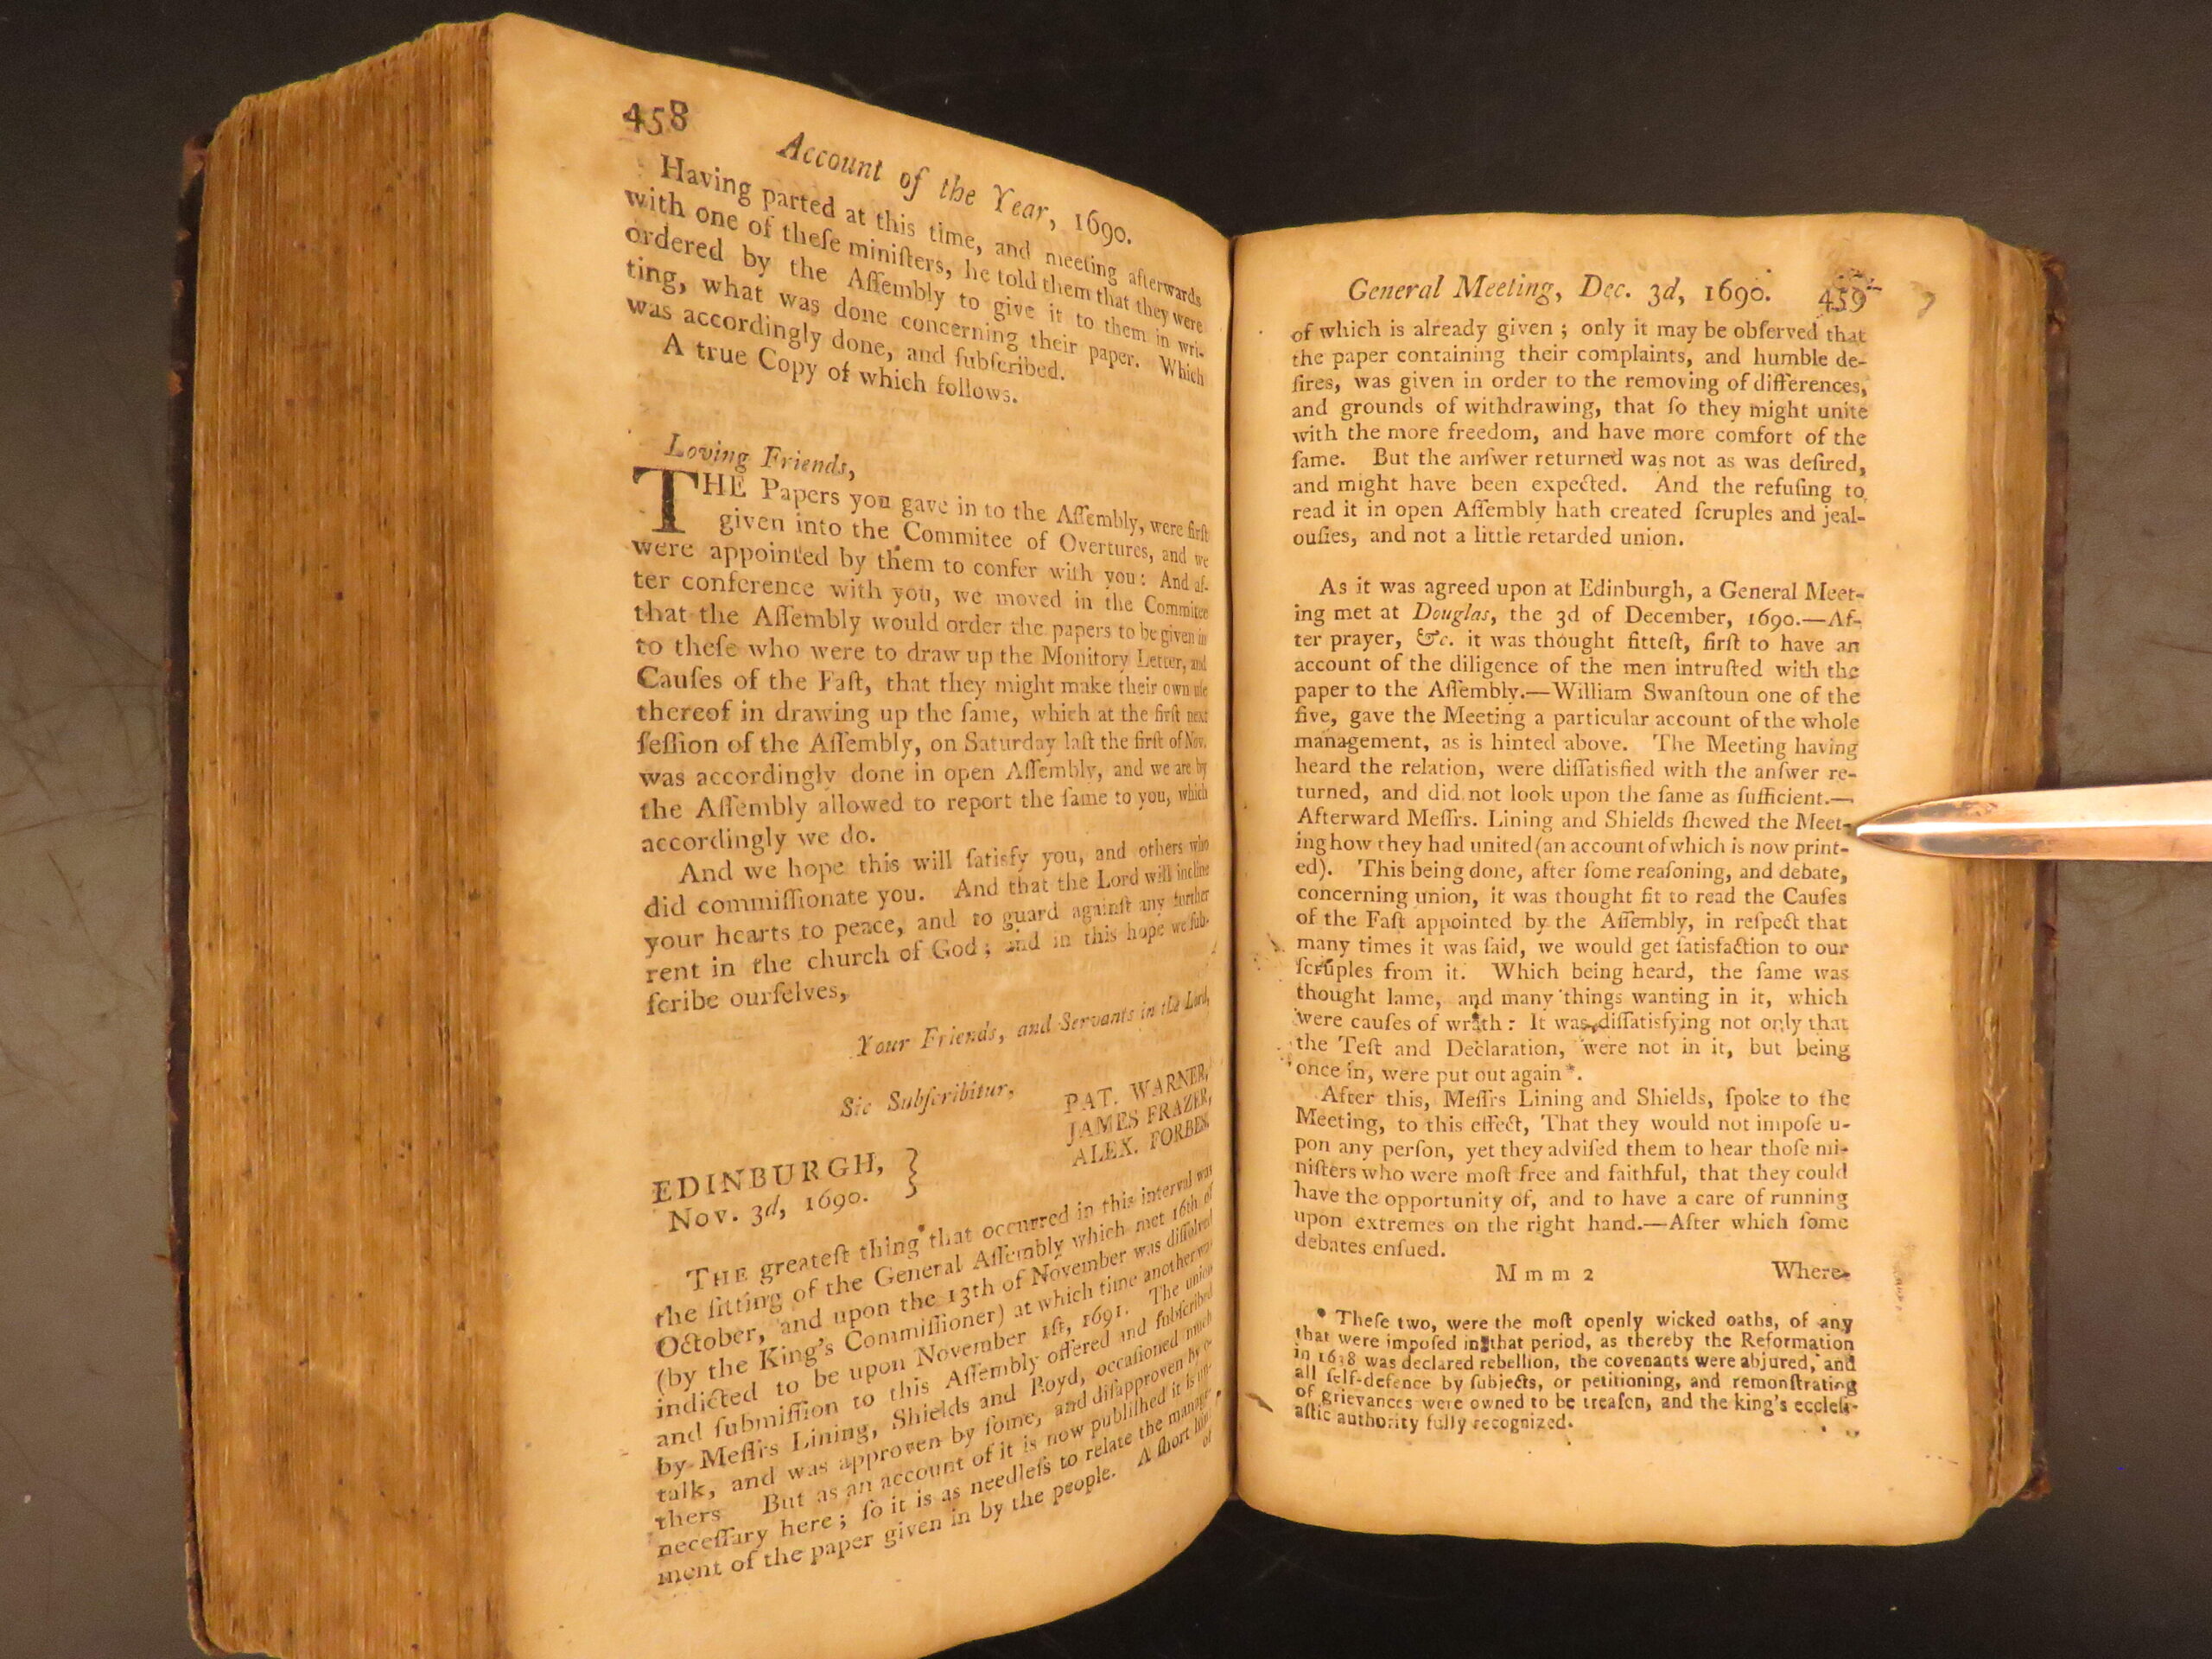 458
Account of the Year, 1690.
Having parted at this time, and meeting afterwards
with one of theſe miniſters, he told them that they were
ordered by the Aſſembly to give it to them in wri-
ting, what was done concerning their paper. Which
was accordingly done, and ſubſcribed.
A true Copy of which follows.
Loving Friends,
THE Papers you gave in to the Aſſembly, were firſt
given into the Commitee of Overtures, and we
were appointed by them to confer with you: And af-
ter conference with you, we moved in the Commitee
that the Aſſembly would order the papers to be given in
to theſe who were to draw up the Monitory Letter, and
Cauſes of the Faſt, that they might make their own uſe
thereof in drawing up the ſame, which at the firſt next
ſeſſion of the Aſſembly, on Saturday laſt the firſt of Nov.
was accordingly done in open Aſſembly, and we are by
the Aſſembly allowed to report the ſame to you, which
accordingly we do.
And we hope this will ſatisfy you, and others who
did commiſſionate you. And that the Lord will incline
your hearts to peace, and to guard againſt any further
rent in the church of God; and in this hope we ſub-
ſcribe ourſelves,
Your Friends, and Servants in the Lord,
Sic Subſcribitur,
PAT. WARNER,
JAMES FRAZER,
ALEX. FORBES.
EDINBURGH, }
Nov. 3d, 1690.
THE greateſt thing that occurred in this interval was
the ſitting of the General Aſſembly which met 16th of
October, and upon the 13th of November was diſſolved
(by the King's Commiſſioner) at which time another was
indicted to be upon November 1ſt, 1691. The union
and ſubmiſſion to this Aſſembly offered and ſubſcribed
by Meſſrs Lining, Shields and Boyd, occaſioned much
talk, and was approven by ſome, and diſapproven by o-
thers But as an account of it is now publiſhed it is un-
neceſſary here; ſo it is as needleſs to relate the manage-
ment of the paper given in by the people. A ſhort hint
of
General Meeting, Dec. 3d, 1690. 459
of which is already given; only it may be obſerved that
the paper containing their complaints, and humble de-
ſires, was given in order to the removing of differences,
and grounds of withdrawing, that ſo they might unite
with the more freedom, and have more comfort of the
ſame. But the anſwer returned was not as was deſired,
and might have been expected. And the refuſing to
read it in open Aſſembly hath created ſcruples and jeal-
ouſies, and not a little retarded union.
As it was agreed upon at Edinburgh, a General Meet-
ing met at Douglas, the 3d of December, 1690.—Af-
ter prayer, &c. it was thought fitteſt, firſt to have an
account of the diligence of the men intruſted with the
paper to the Aſſembly.—William Swanſtoun one of the
five, gave the Meeting a particular account of the whole
management, as is hinted above. The Meeting having
heard the relation, were diſſatisfied with the anſwer re-
turned, and did not look upon the ſame as ſufficient.—
Afterward Meſſrs. Lining and Shields ſhewed the Meet-
ing how they had united (an account of which is now print-
ed). This being done, after ſome reaſoning, and debate,
concerning union, it was thought fit to read the Cauſes
of the Faſt appointed by the Aſſembly, in reſpect that
many times it was ſaid, we would get ſatisfaction to our
ſcruples from it. Which being heard, the ſame was
thought lame, and many things wanting in it, which
were cauſes of wrath: It was diſſatisfying not only that
the Teſt and Declaration, were not in it, but being
once in, were put out again *.
After this, Meſſrs Lining and Shields, ſpoke to the
Meeting, to this effect, That they would not impoſe u-
pon any perſon, yet they adviſed them to hear thoſe mi-
niſters who were moſt free and faithful, that they could
have the opportunity of, and to have a care of running
upon extremes on the right hand.—After which ſome
debates enſued.
M m m 2 Where-
* Theſe two, were the moſt openly wicked oaths, of any
that were impoſed in that period, as thereby the Reformation
in 1638 was declared rebellion, the covenants were abjured, and
all ſelf-defence by ſubjects, or petitioning, and remonſtrating
of grievances were owned to be treaſon, and the king's eccleſi-
aſtic authority fully recognized.